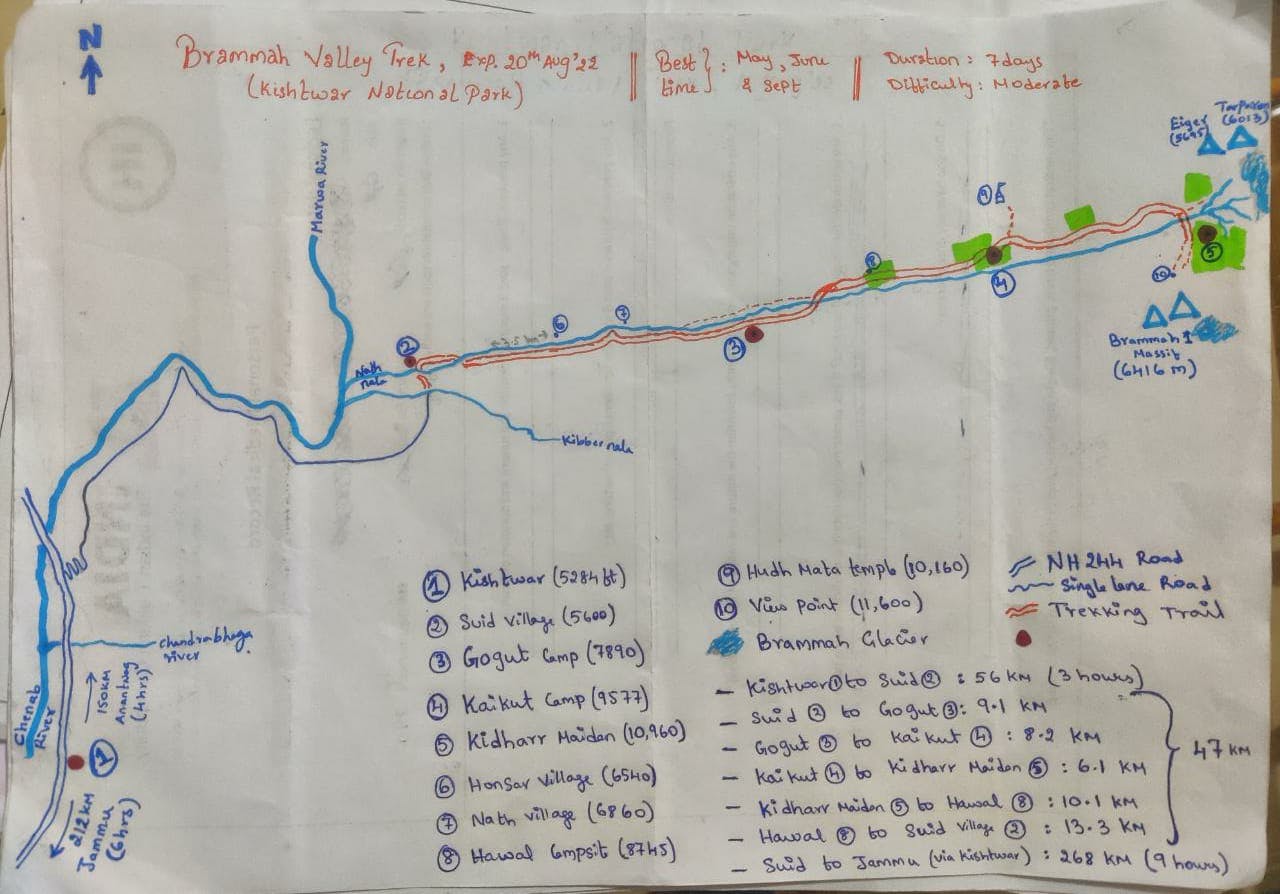 N
Brammah Valley Trek, Exp. 20th Aug'22
(Kishtwar National Park)
Best time } : May, June & Sept
Duration : 7days
Difficulty : Moderate
Eiger
(5695)
Tarpakon
(6013)
Marwa River
Nath nala
Kibber nala
2
6
7
3
8
4
9
10
5
Brammah I
Massif
(6416 m)
chandrabhaga
river
Chenab
River
150KM
Anantnag
(4hrs)
1
212KM
Jammu
(6hrs)
1 Kishtwar (5284 ft)
2 Suid Village (5600)
3 Gogut Camp (7890)
4 Kaikut Camp (9577)
5 Kidharr Maidan (10,960)
6 Honsar Village (6540)
7 Nath village (6860)
8 Hawal Campsit (8745)
9 Hudh Mata templ (10,160)
10 View Point (11,600)
Brammah Glacier
NH 244 Road
Single lane Road
Trekking Trail
- Kishtwar 1 to Suid 2 : 56 KM (3 hours)
- Suid 2 to Gogut 3 : 9.1 KM
- Gogut 3 to Kaikut 4 : 8.2 KM
- Kaikut 4 to Kidharr Maidan 5 : 6.1 KM
- Kidharr Maidan 5 to Hawal 8 : 10.1 KM
- Hawal 8 to Suid Village 2 : 13.3 KM
- Suid to Jammu (via Kishtwar) : 268 KM (9 hours)
47 KM